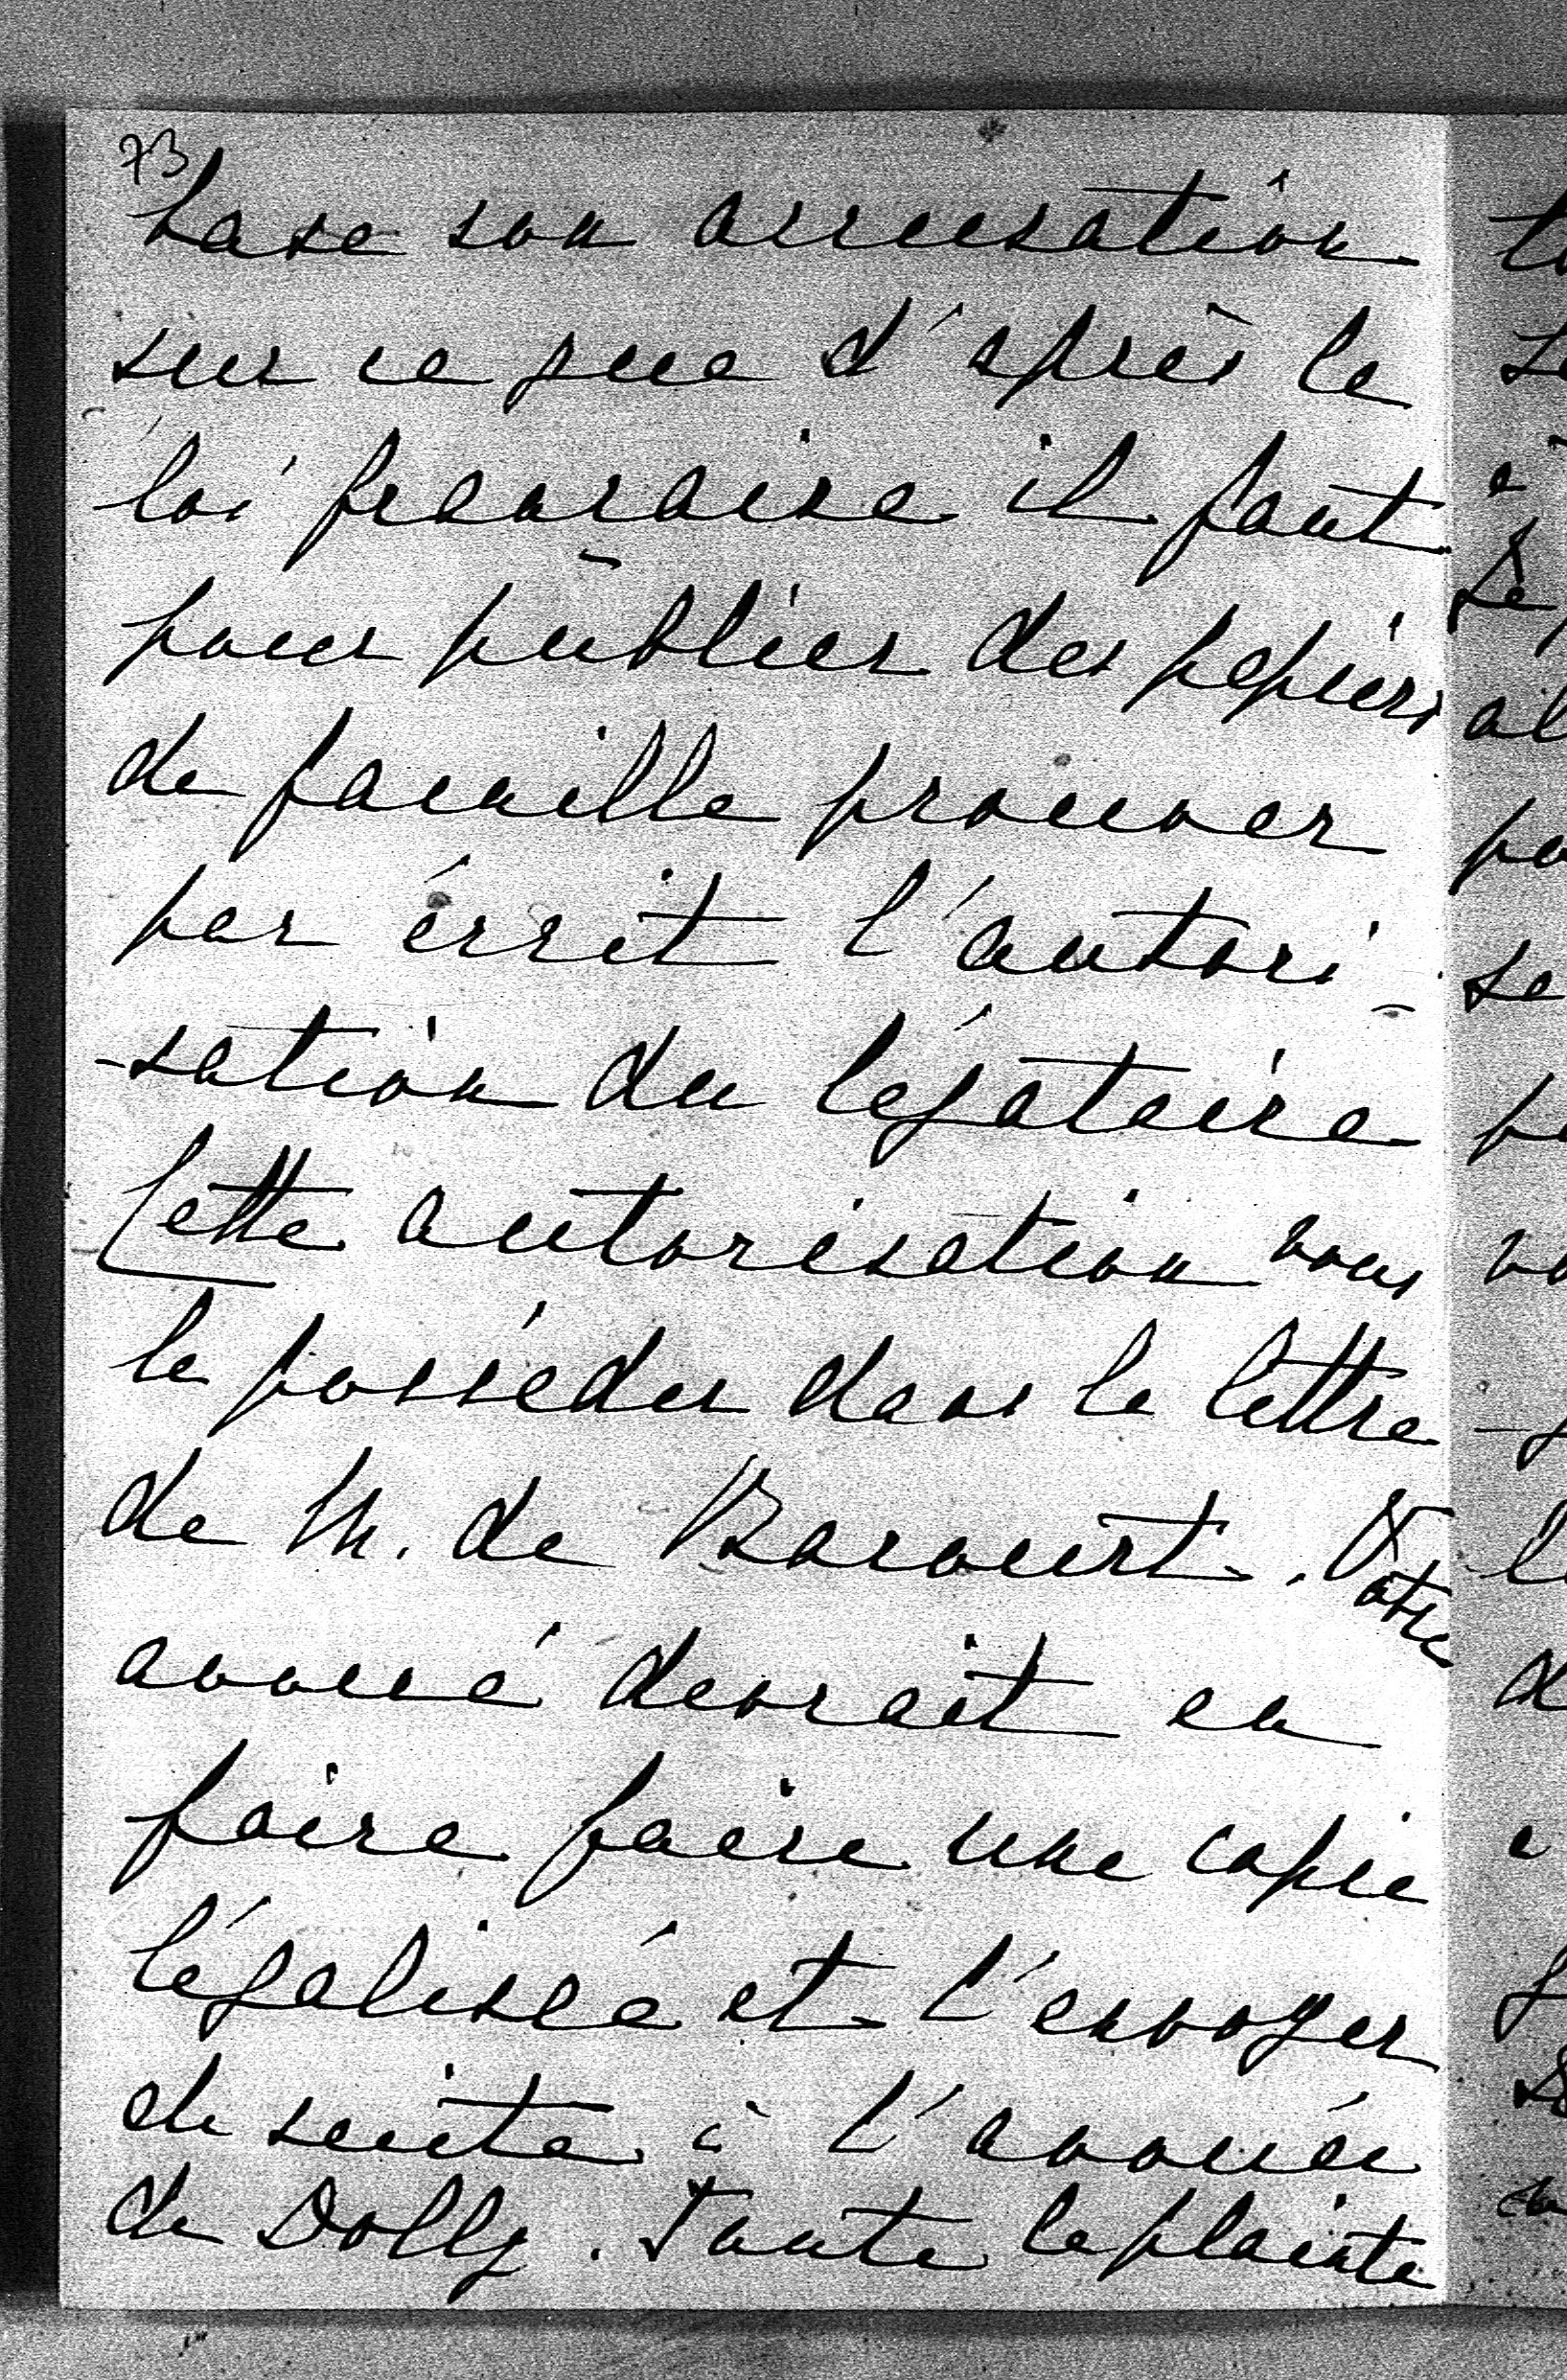 73
base son accusation
sur ce que d'après la
loi française il faut
pour publier des papiers
de famille prouver
par écrit l'autori-
-sation du légataire
Cette autorisation vous
la possédez dans la lettre
de M. de Bacourt. Votre
avoué devrait en
faire faire une copie
légalisée et l'envoyer
de suite à l'avoué
de Dolly. Toute la plainte